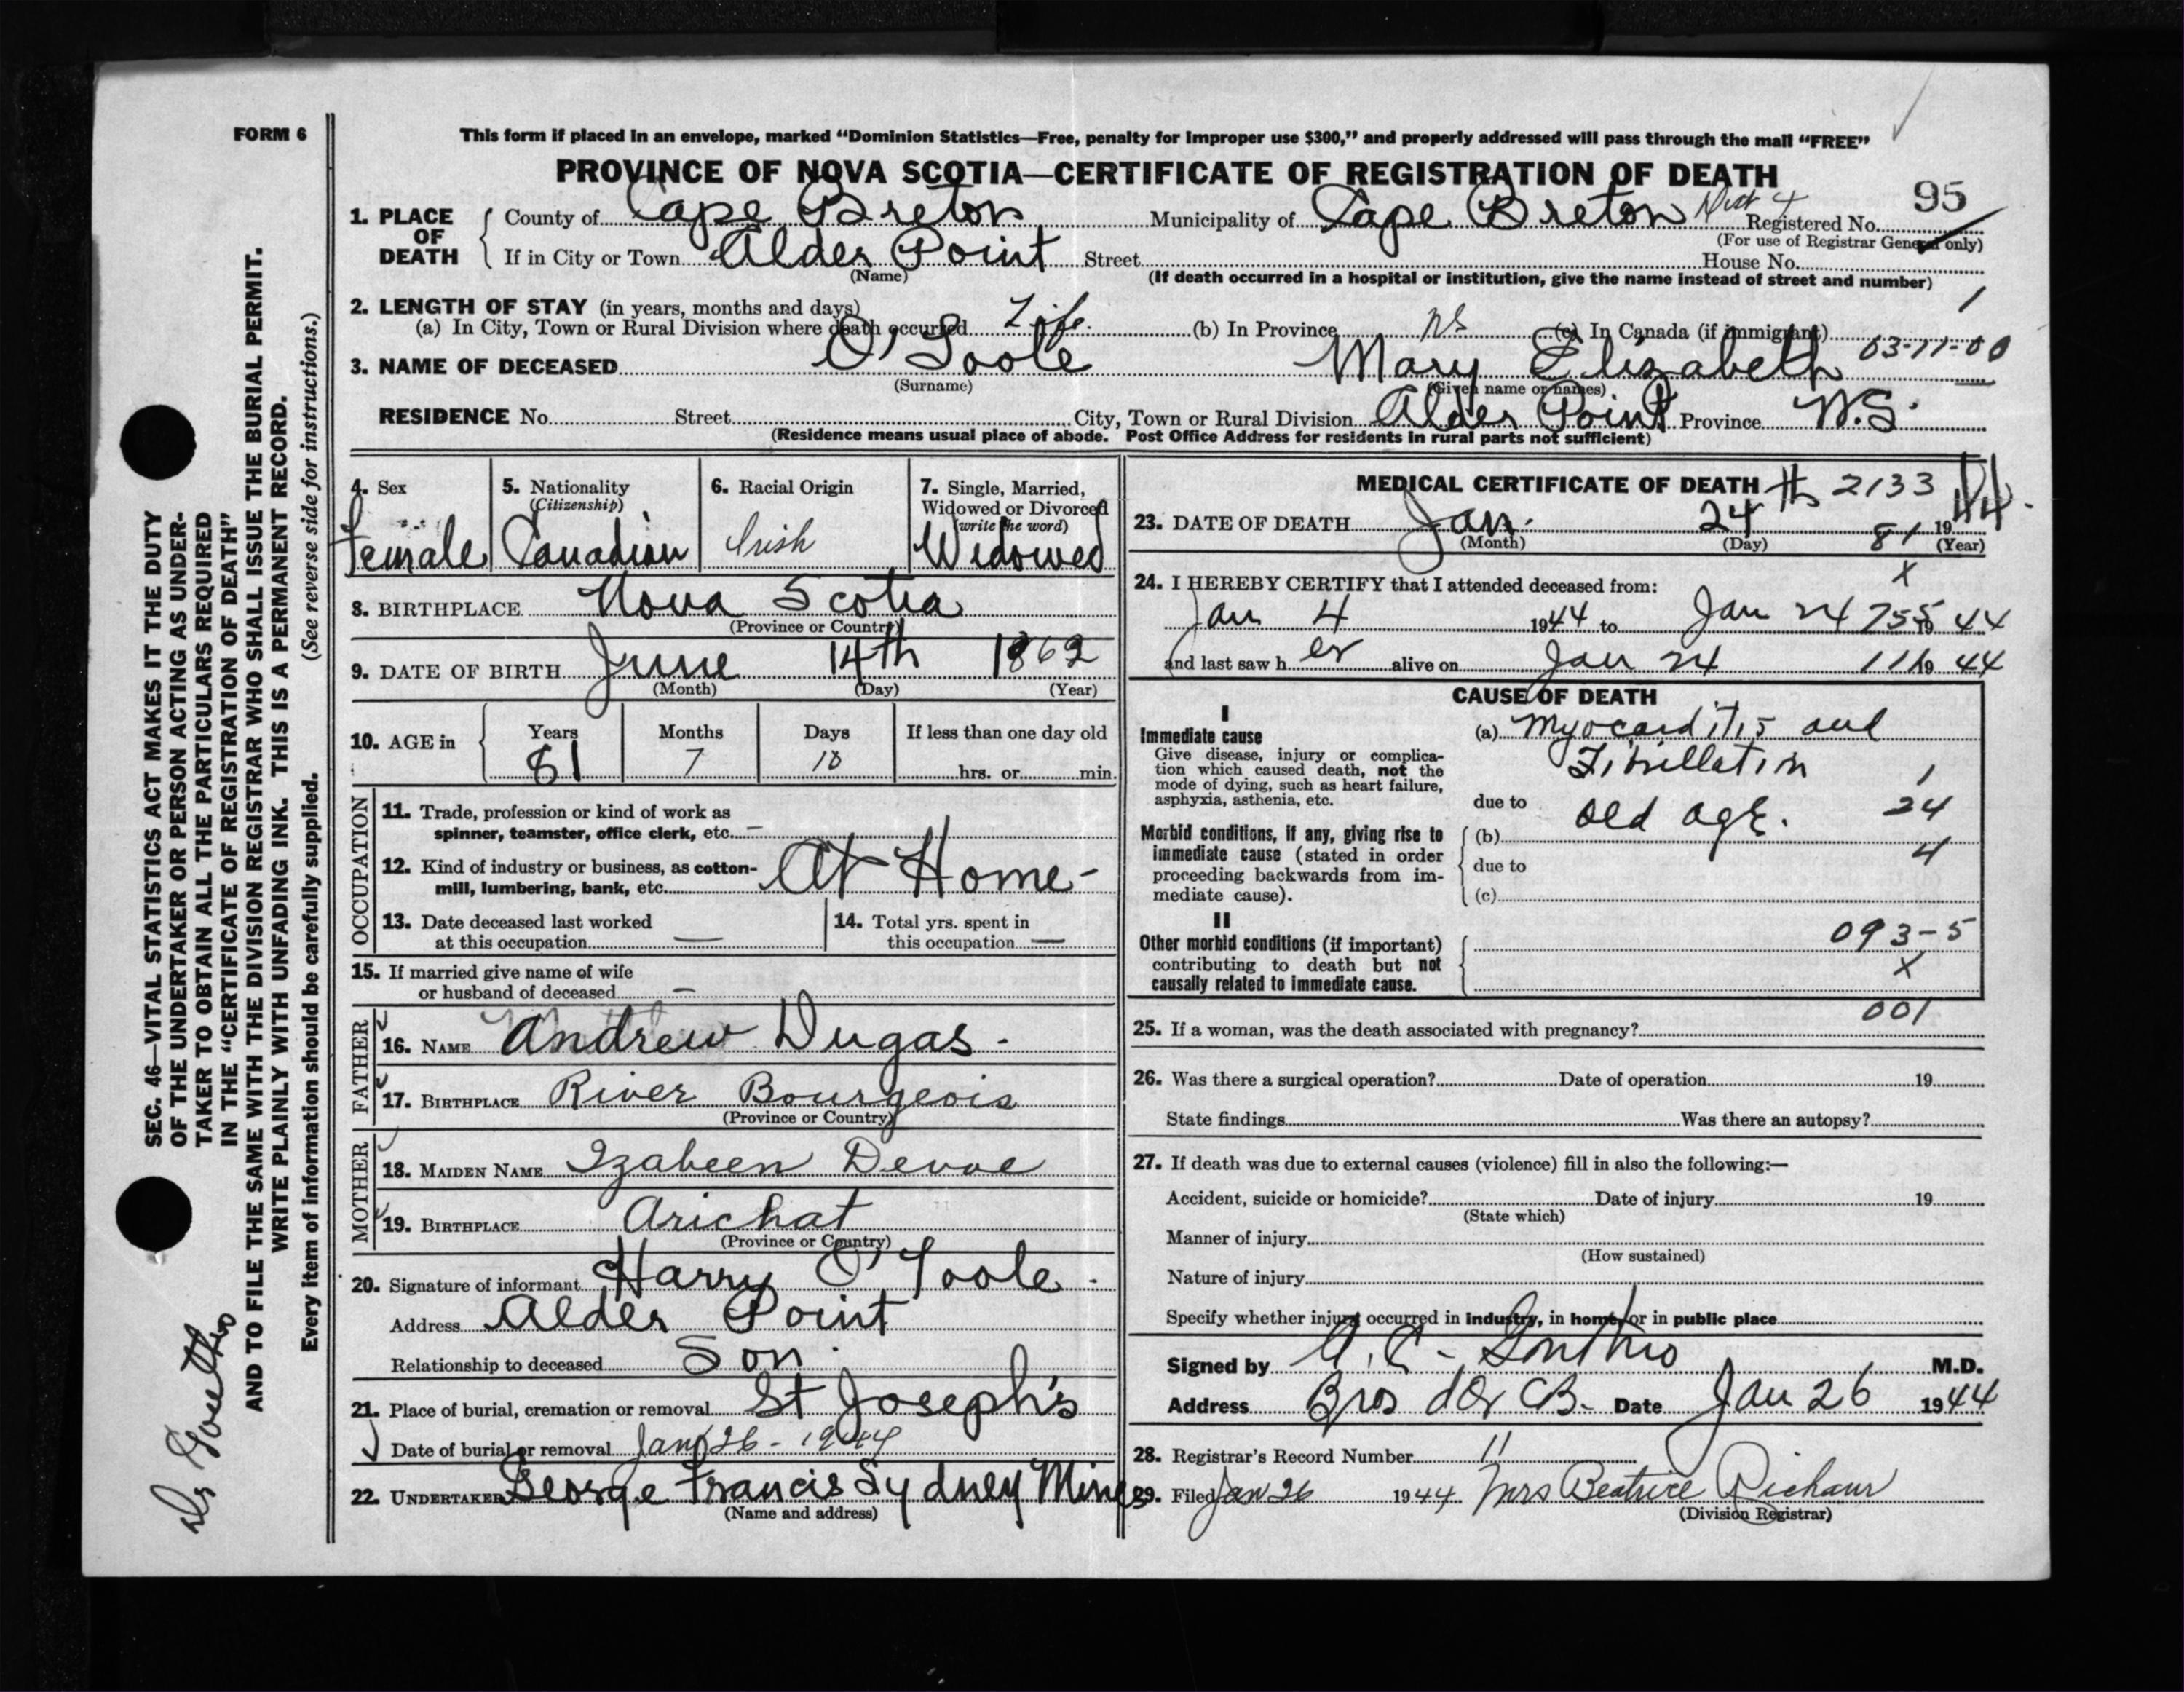 FORM 6
This form if placed in an envelope, marked "Dominion Statistics—Free, penalty for improper use $300," and properly addressed will pass through the mail "FREE"
PROVINCE OF NOVA SCOTIA—CERTIFICATE OF REGISTRATION OF DEATH
95
1. PLACE OF DEATH
County of Cape Breton Municipality of Cape Breton Dist 4 Registered No.
(For use of Registrar General only)
If in City or Town Alder Point Street House No.
(Name) (If death occurred in a hospital or institution, give the name instead of street and number)
2. LENGTH OF STAY (in years, months and days)
1
(a) In City, Town or Rural Division where death occurred Life. (b) In Province NS (c) In Canada (if immigrant)
3. NAME OF DECEASED O'Toole Mary Elizabeth 03-11-00
(Surname) (Given name or names)
RESIDENCE No. Street City, Town or Rural Division Alder Point Province N.S.
(Residence means usual place of abode. Post Office Address for residents in rural parts not sufficient)
4. Sex
Female
5. Nationality
(Citizenship)
Canadian
6. Racial Origin
Irish
7. Single, Married,
Widowed or Divorced
(write the word)
Widowed
8. BIRTHPLACE Nova Scotia
(Province or Country)
9. DATE OF BIRTH June 14th 1862
(Month) (Day) (Year)
10. AGE in
Years Months Days If less than one day old
81 7 10 hrs. or min.
OCCUPATION
11. Trade, profession or kind of work as
spinner, teamster, office clerk, etc. —
12. Kind of industry or business, as cotton-
mill, lumbering, bank, etc. At Home -
13. Date deceased last worked
at this occupation —
14. Total yrs. spent in
this occupation —
15. If married give name of wife
or husband of deceased —
FATHER
16. NAME Andrew Dugas -
17. BIRTHPLACE River Bourgeois
(Province or Country)
MOTHER
18. MAIDEN NAME Izabeen Devoe
19. BIRTHPLACE Arichat
(Province or Country)
20. Signature of informant Harry O'Toole -
Address Alder Point
Relationship to deceased Son.
21. Place of burial, cremation or removal St Joseph's
Date of burial or removal Jan 26 - 1944
22. UNDERTAKER George Francis Sydney Mines
(Name and address)
MEDICAL CERTIFICATE OF DEATH 2133
23. DATE OF DEATH Jan. 24 81 19 44.
(Month) (Day) (Year)
24. I HEREBY CERTIFY that I attended deceased from: x
Jan 4 1944 to Jan 24 755 19 44
and last saw h er alive on Jan 24 111 19 44
CAUSE OF DEATH
I
Immediate cause
Give disease, injury or complica-
tion which caused death, not the
mode of dying, such as heart failure,
asphyxia, asthenia, etc.
(a) Myocarditis and
Fibrillation 1
due to old age. 24
Morbid conditions, if any, giving rise to
immediate cause (stated in order
proceeding backwards from im-
mediate cause).
(b) 4
due to
(c)
II
Other morbid conditions (if important)
contributing to death but not
causally related to immediate cause.
093-5
X
001
25. If a woman, was the death associated with pregnancy?
26. Was there a surgical operation? Date of operation 19
State findings Was there an autopsy?
27. If death was due to external causes (violence) fill in also the following:—
Accident, suicide or homicide? Date of injury 19
(State which)
Manner of injury
(How sustained)
Nature of injury
Specify whether injury occurred in industry, in home, or in public place
Signed by A. C. M.D.
Address Bras d'Or CB. Date Jan 26 1944
28. Registrar's Record Number 11
29. Filed Jan 26 1944 Mrs Beatrice
(Division Registrar)
SEC. 46—VITAL STATISTICS ACT MAKES IT THE DUTY
OF THE UNDERTAKER OR PERSON ACTING AS UNDER-
TAKER TO OBTAIN ALL THE PARTICULARS REQUIRED
IN THE "CERTIFICATE OF REGISTRATION OF DEATH"
AND TO FILE THE SAME WITH THE DIVISION REGISTRAR WHO SHALL ISSUE THE BURIAL PERMIT.
WRITE PLAINLY WITH UNFADING INK. THIS IS A PERMANENT RECORD.
Every item of information should be carefully supplied. (See reverse side for instructions.)
Dr